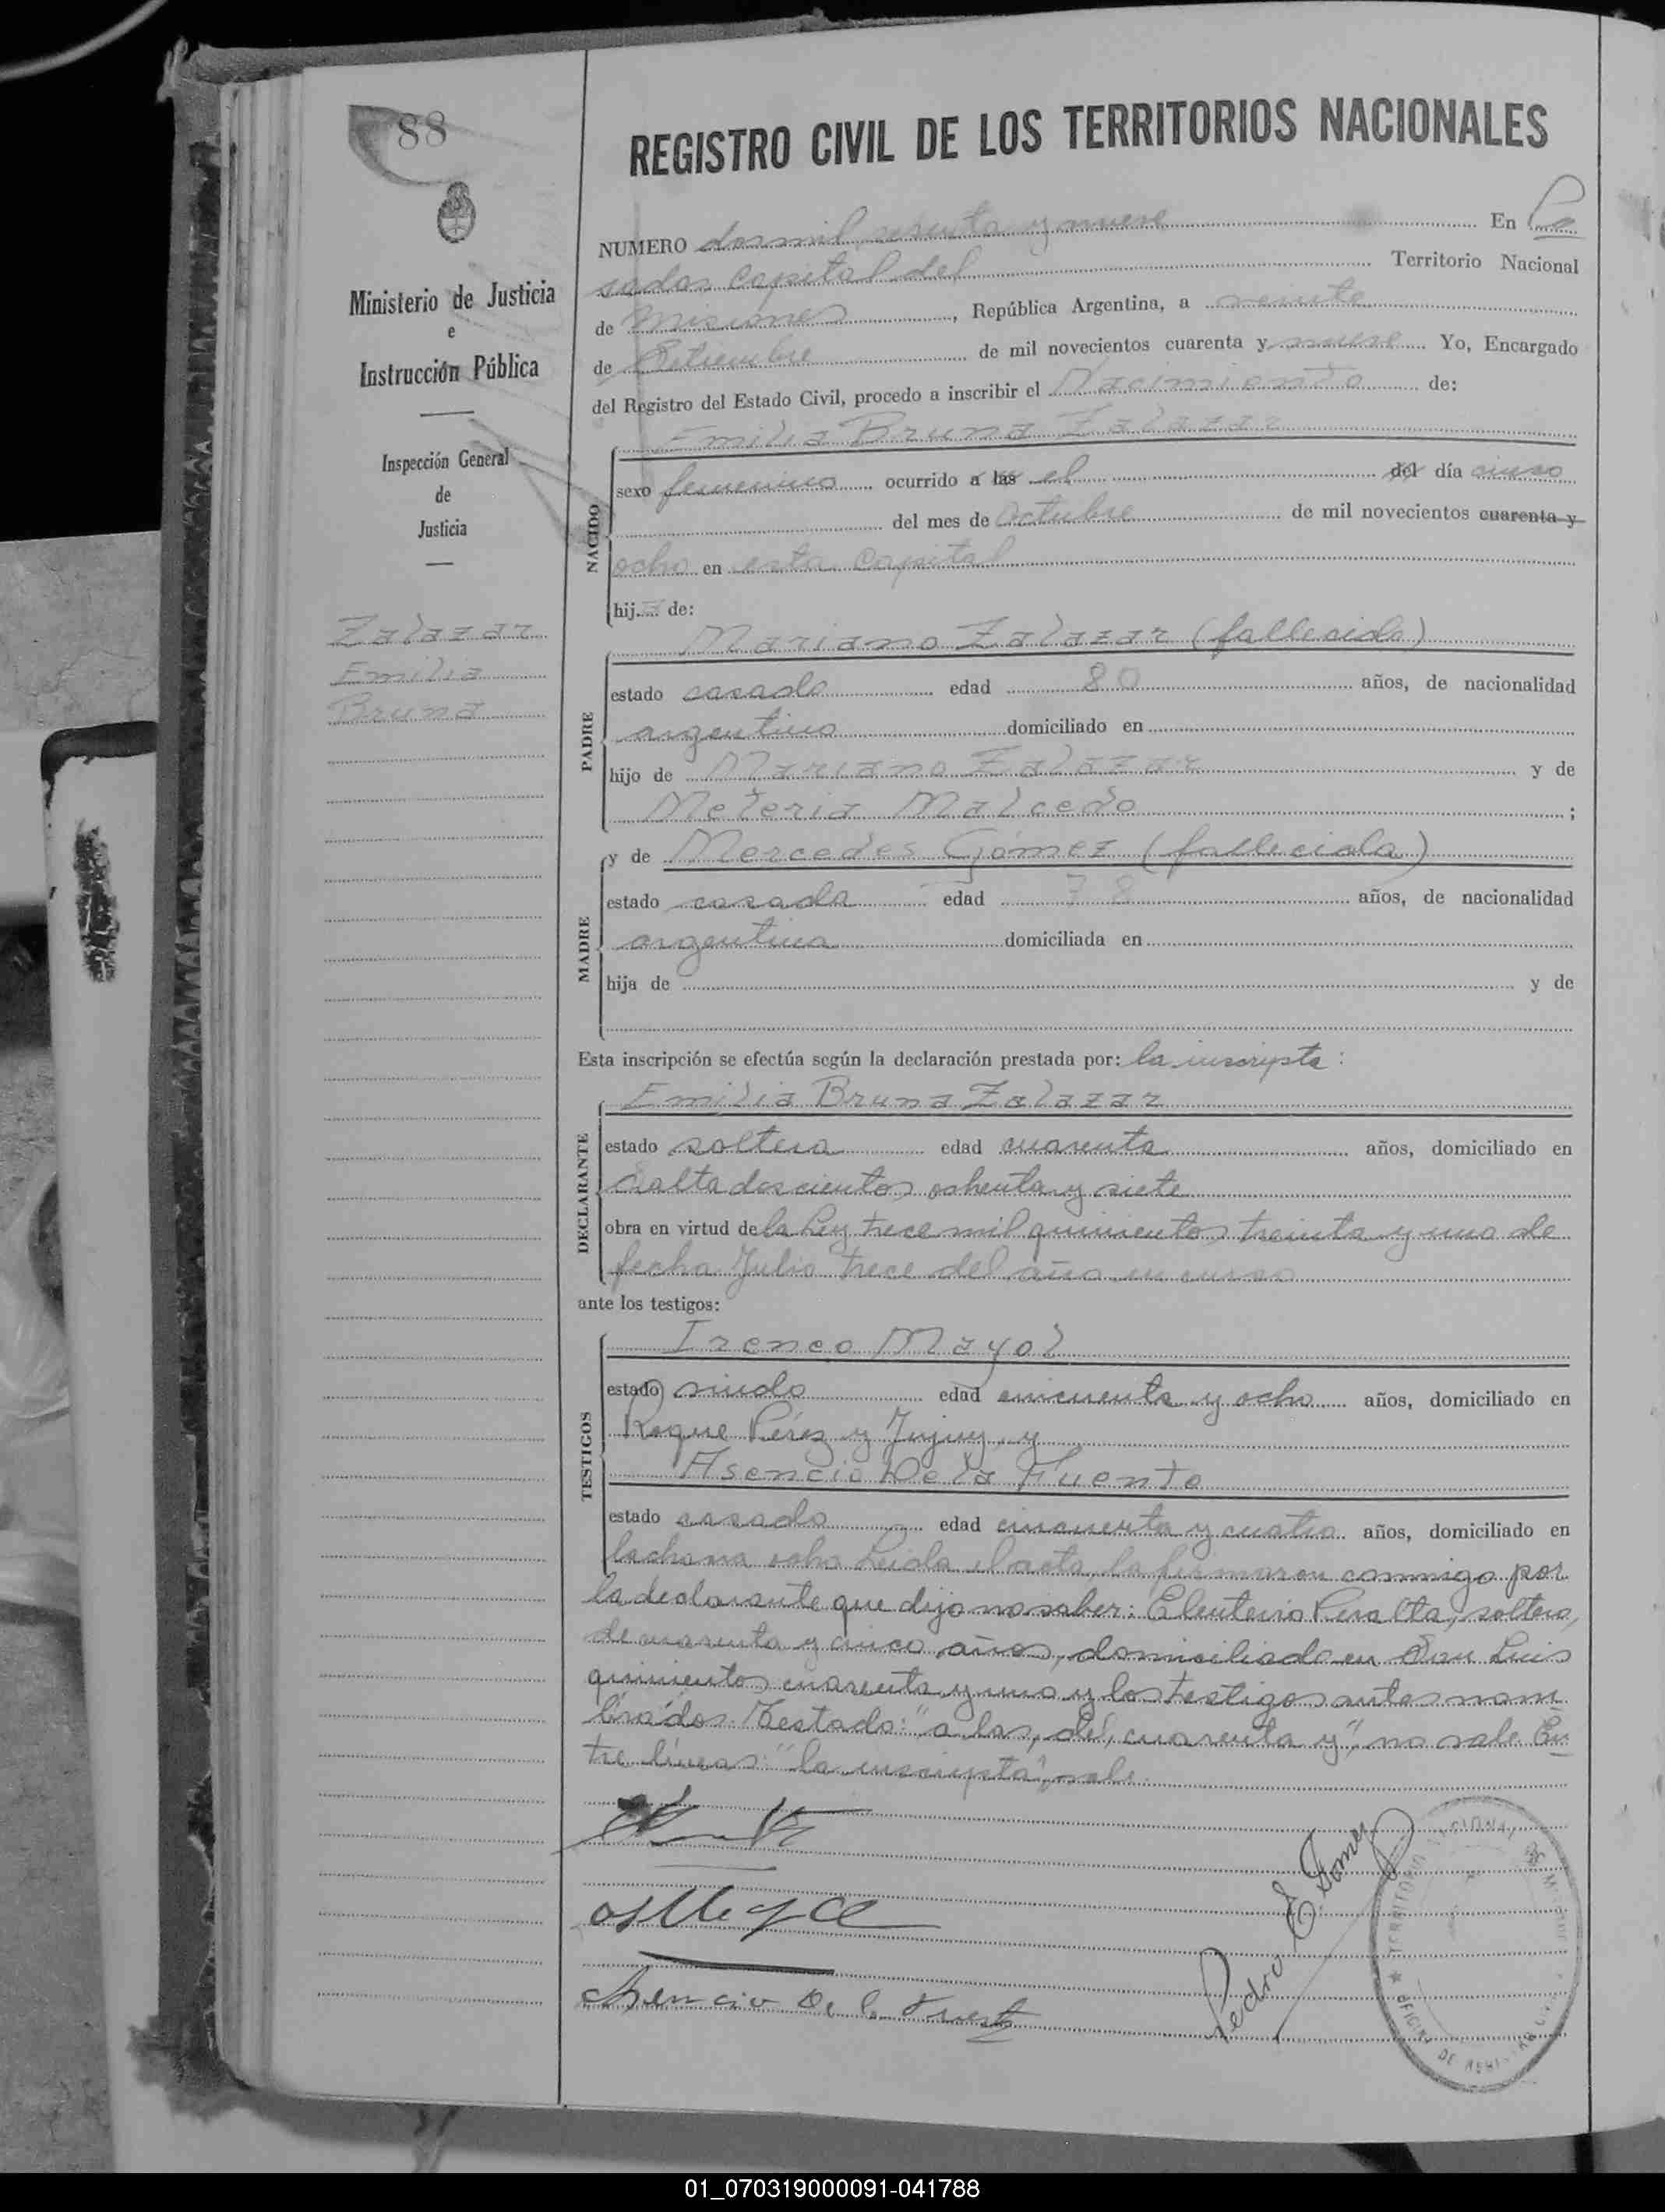 88
REGISTRO CIVIL DE LOS TERRITORIOS NACIONALES
Ministerio de Justicia
e
Instrucción Pública
Inspección General
de
Justicia
Zalazar
Emilia
Bruna
NUMERO dosmil sesenta y nueve En Po
sadas capital del Territorio Nacional
de Misiones, República Argentina, a veinte
de Setiembre de mil novecientos cuarenta y nueve Yo, Encargado
del Registro del Estado Civil, procedo a inscribir el Nacimiento de:
NACIDO
Emilia Bruna Zalazar
sexo femenino ocurrido a las el del día cinco
del mes de Octubre de mil novecientos cuarenta y
ocho en esta Capital
hija de:
PADRE
Mariano Zalazar (fallecido)
estado casado edad 80 años, de nacionalidad
argentino domiciliado en
hijo de Mariano Zalazar y de
Meteria Malcedo ;
MADRE
y de Mercedes Gómez (fallecida)
estado casada edad 78 años, de nacionalidad
argentina domiciliada en
hija de y de
Esta inscripción se efectúa según la declaración prestada por: la inscripta:
DECLARANTE
Emilia Bruna Zalazar
estado soltera edad cuarenta años, domiciliado en
Salta doscientos ochenta y siete
obra en virtud de la Ley trece mil quinientos treinta y uno de
fecha Julio trece del año en curso
ante los testigos:
TESTIGOS
Ireneo Mayol
estado viudo edad cincuenta y ocho años, domiciliado en
Roque Pérez y Jujuy y
Asencio De la Fuente
estado casado edad cincuenta y cuatro años, domiciliado en
la chacra ocho Leida el acta, la firmaron conmigo por
la declarante que dijo no saber: Eleuterio Peralta, soltero,
de cuarenta y cinco años, domiciliado en San Luis
quinientos cuarenta y uno y los testigos antes nom
brados. Testado: "a las, del, cuarenta y", no vale En
tre líneas: "la inscripta", vale.
Pedro E. Gomez
Asencio De la Fuente
TERRITORIO NACIONAL DE MISIONES
OFICINA DE REGISTRO CIVIL
01_070319000091-041788